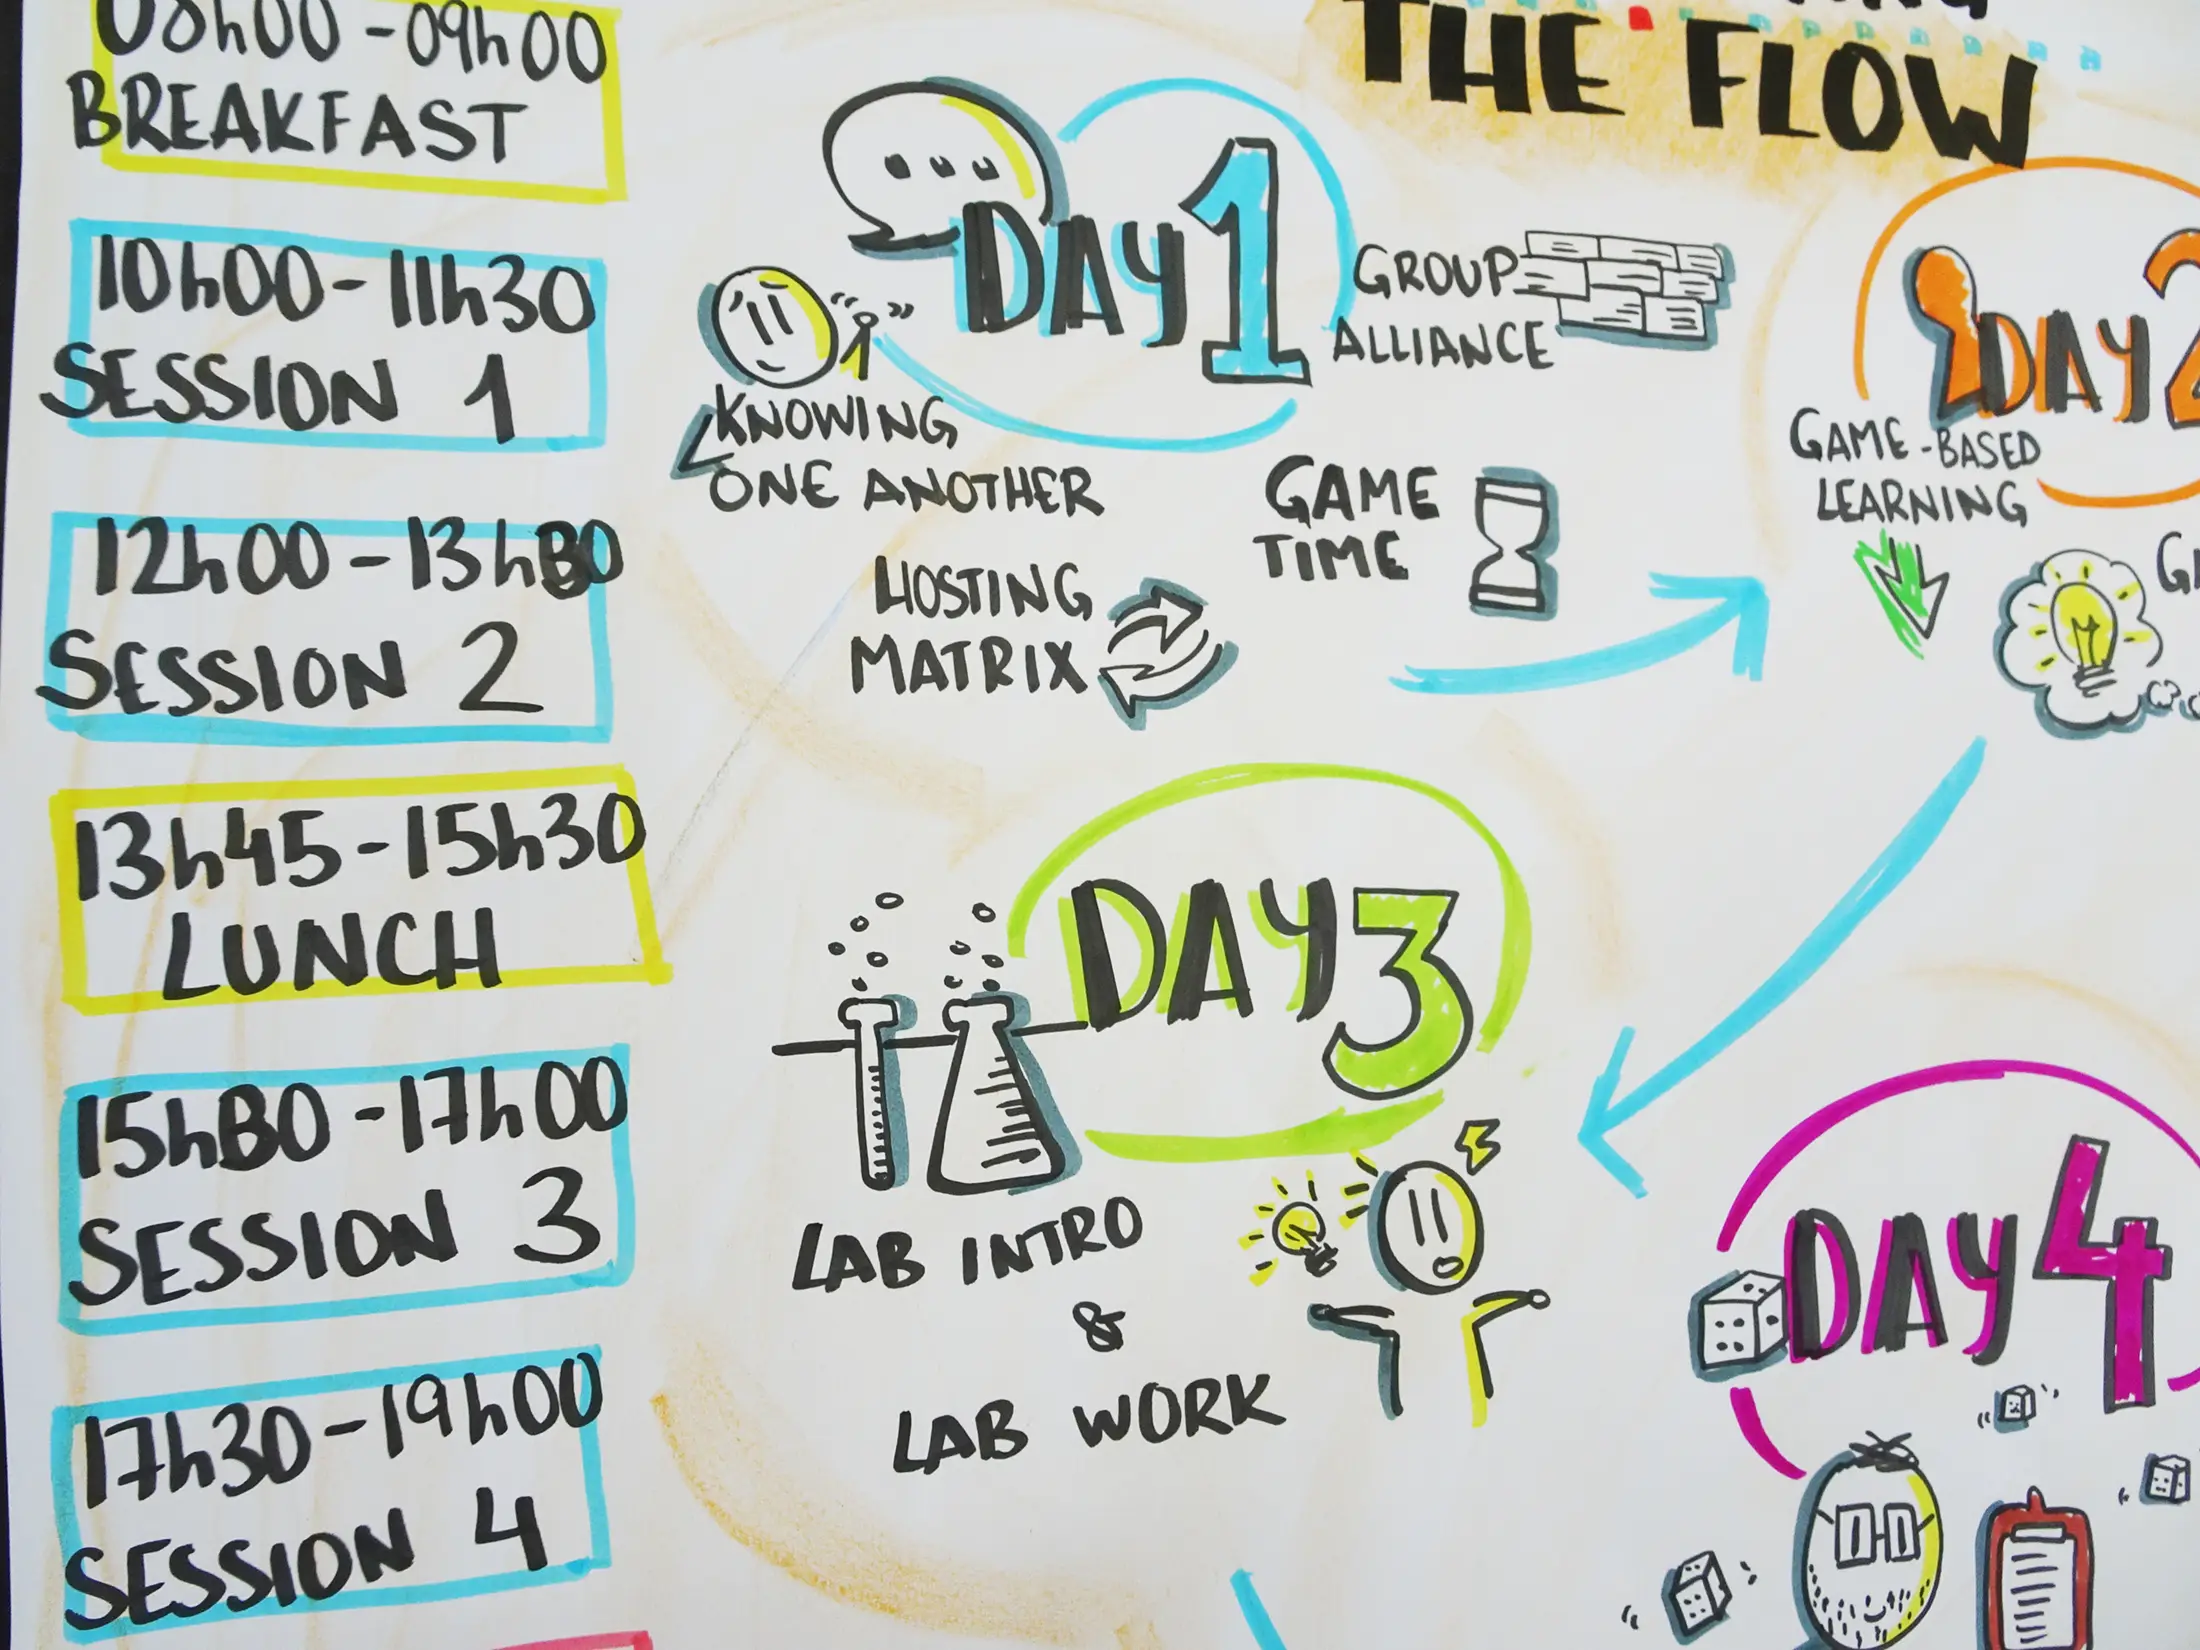 08h00 - 09h00
BREAKFAST
10h00 - 11h30
SESSION 1
12h00 - 13h30
SESSION 2
13h45 - 15h30
LUNCH
15h30 - 17h00
SESSION 3
17h30 - 19h00
SESSION 4
THE FLOW
DAY 1
KNOWING
ONE ANOTHER
GROUP
ALLIANCE
HOSTING
MATRIX
GAME
TIME
DAY 2
GAME-BASED
LEARNING
DAY 3
LAB INTRO
&
LAB WORK
DAY 4